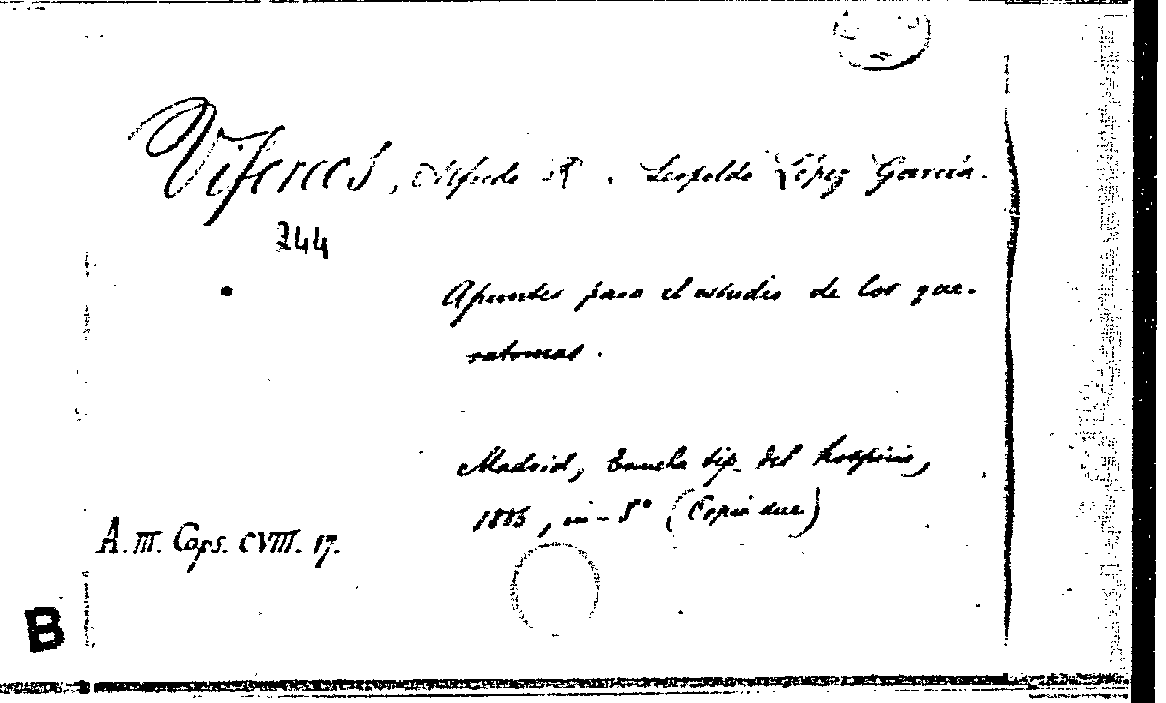 Viferces, Alfredo R. Leopoldo López García.
244
Apuntes para el estudio de los que-
ratomas.
Madrid, Escuela tip. del hospicio,
1883, in-8° (Copie due)
A. III. Caps. CVIII. 17.
B